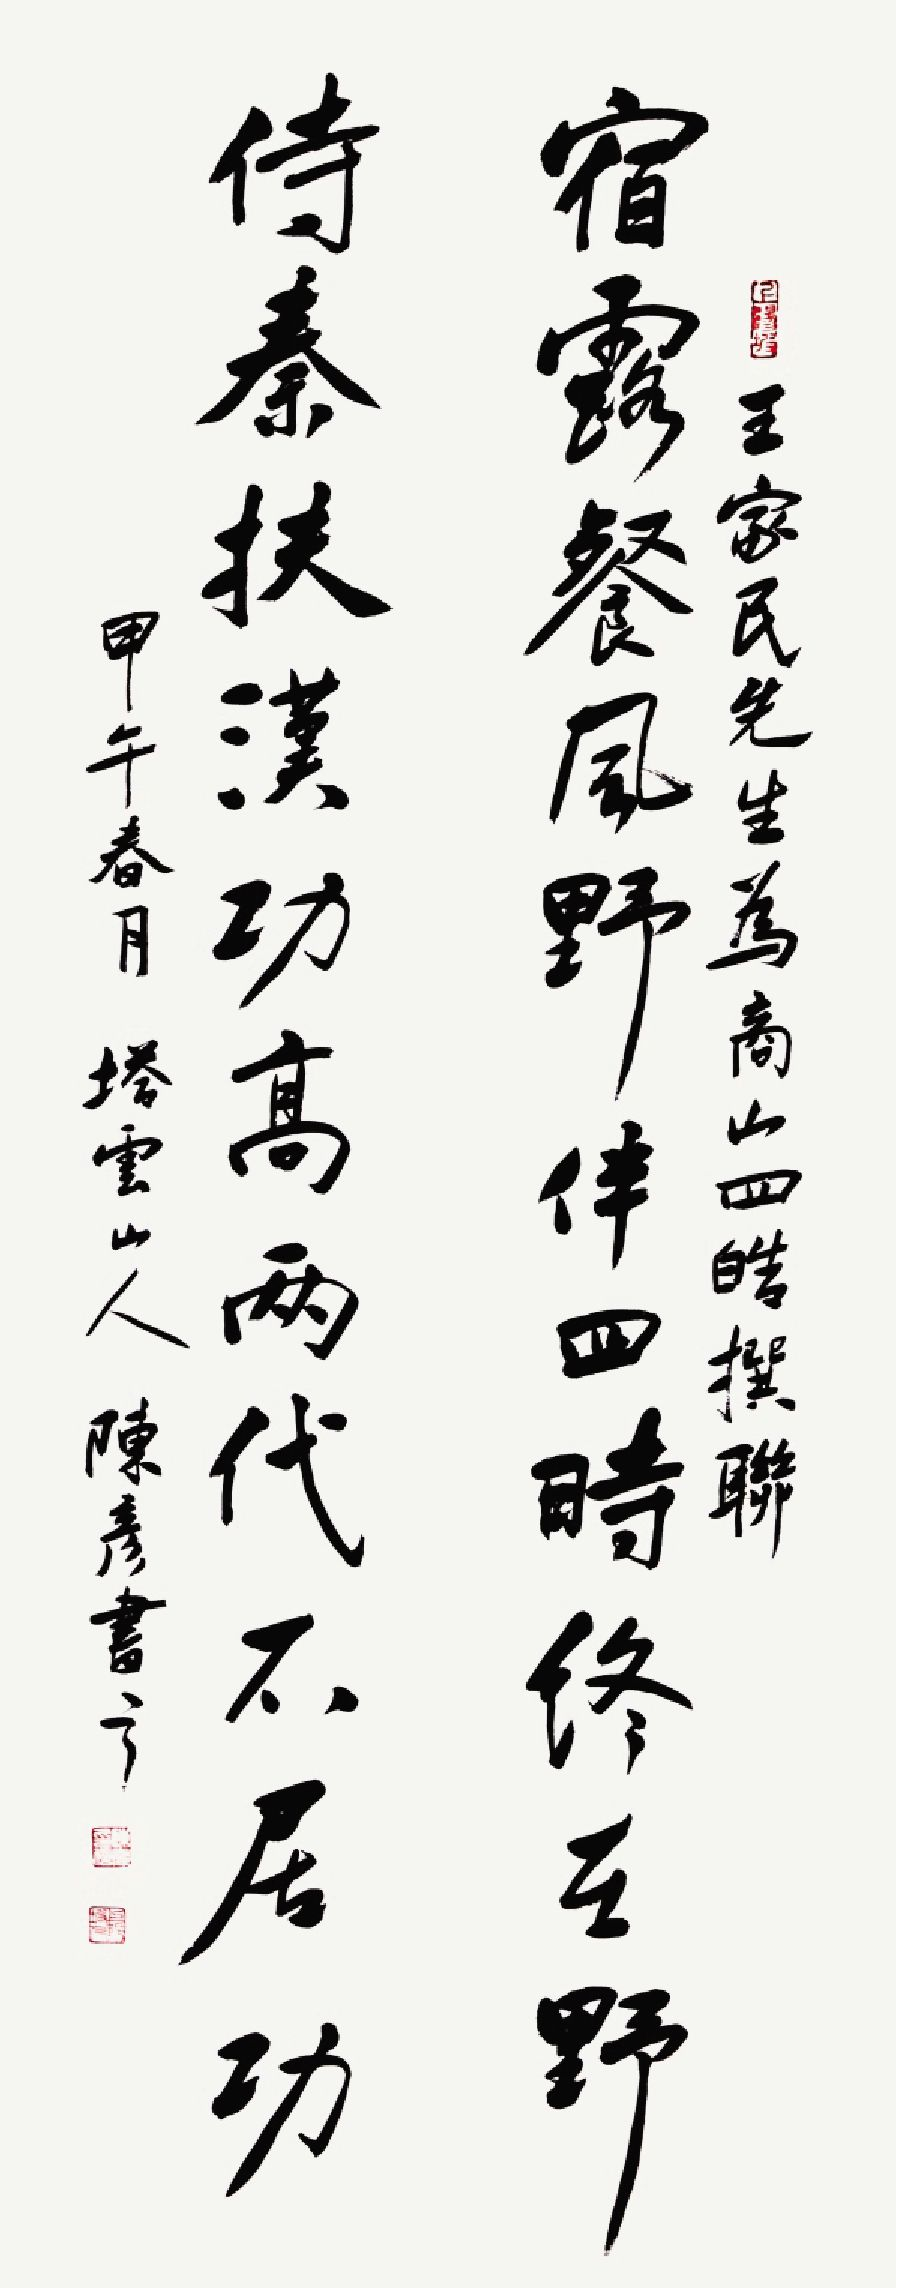 王家民先生為商山四皓撰聯
宿露餐風野伴四時終在野
侍秦扶漢功高两代不居功
甲午春月 塔雲山人 陳彥書